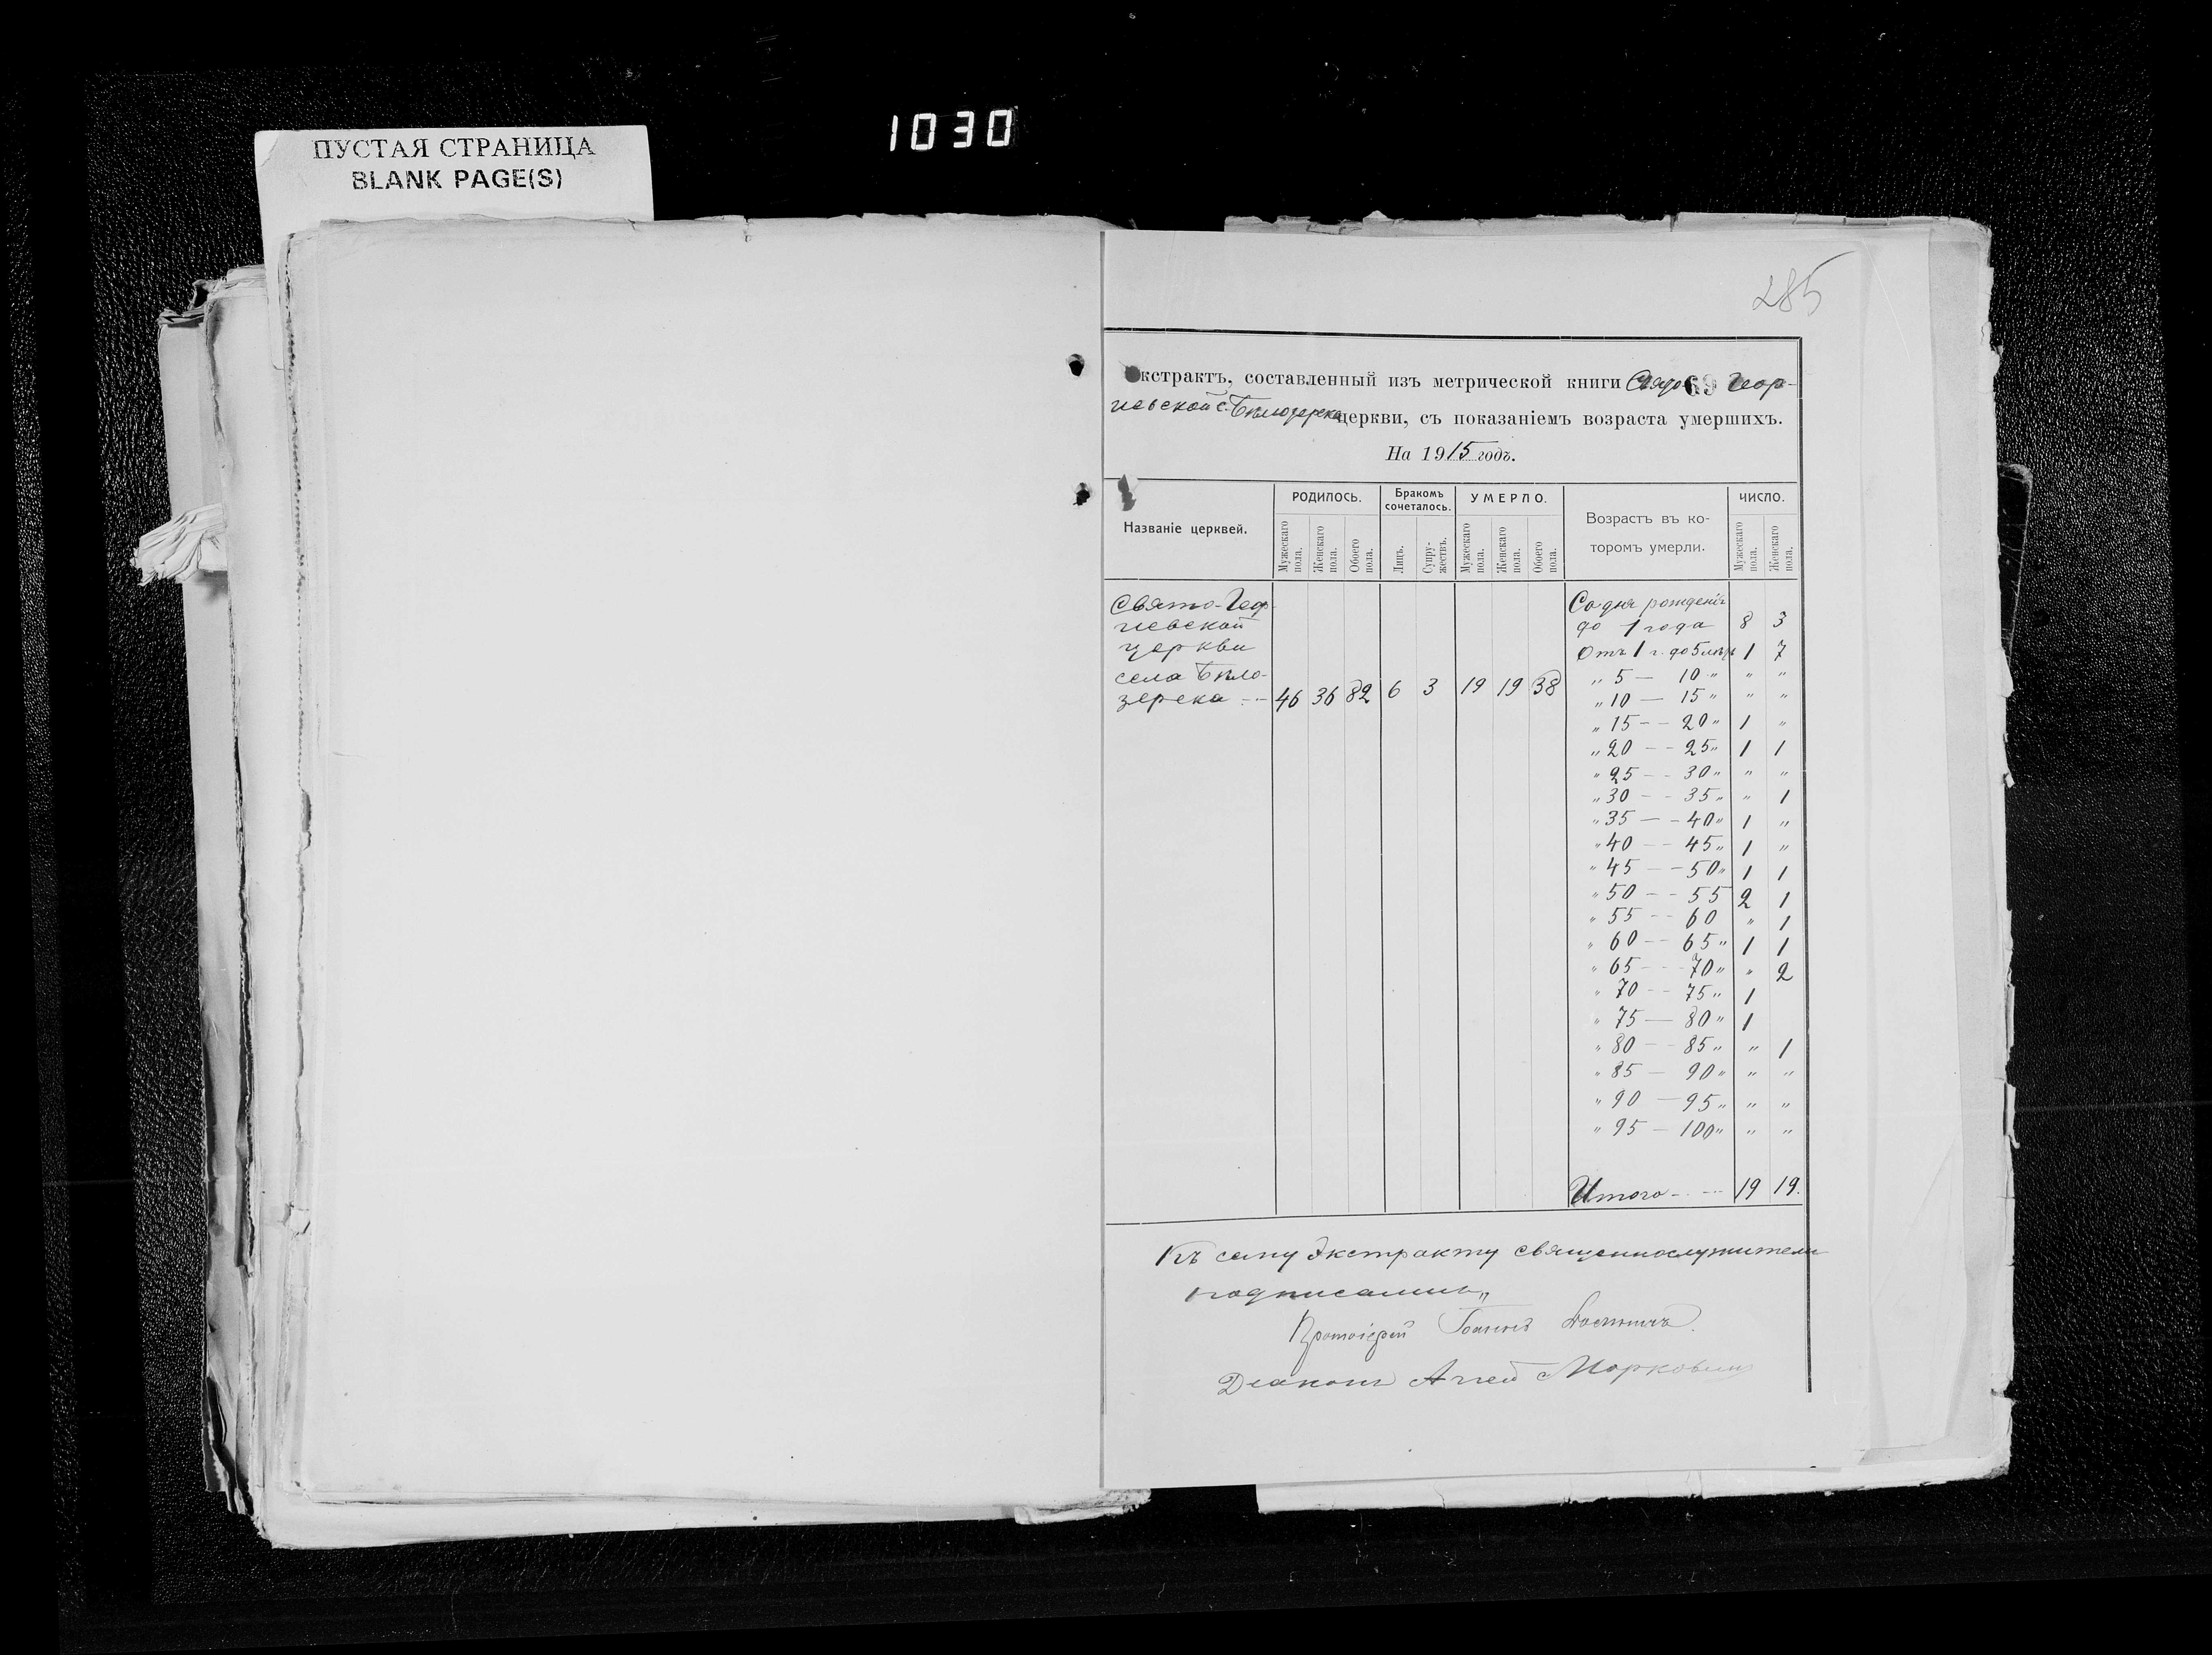 1030
ПУСТАЯ СТРАНИЦА
BLANK PAGE(S)
285
Экстрактъ, составленный изъ метрической книги Свято 69 Геор-
гіевской с. Бѣлозерека церкви, съ показаніемъ возраста умершихъ.
На 1915 годъ.
Названіе церквей. РОДИЛОСЬ. Бракомъ сочеталось. УМЕРЛО. Возрастъ въ ко- ЧИСЛО.
торомъ умерли.
Мужескаго пола. Женскаго пола. Обоего пола. Лицъ. Супру-жествъ. Мужескаго пола. Женскаго пола. Обоего пола. Мужескаго пола. Женскаго пола.
Свято-Геор-
гіевской
церкви
села Бѣло-
зерека 46 36 82 6 3 19 19 38
Со дня рожденія
до 1 года 8 3
Отъ 1 г. до 5 лѣтъ 1 7
„ 5 — 10 „ „ „
„ 10 — 15 „ „ „
„ 15 — 20 „ 1 „
„ 20 — 25 „ 1 1
„ 25 — 30 „ „ „
„ 30 — 35 „ „ 1
„ 35 — 40 „ 1 „
„ 40 — 45 „ 1 „
„ 45 — 50 „ 1 1
„ 50 — 55 2 1
„ 55 — 60 „ 1
„ 60 — 65 „ 1 1
„ 65 — 70 „ „ 2
„ 70 — 75 „ 1
„ 75 — 80 „ 1
„ 80 — 85 „ „ 1
„ 85 — 90 „ „ „
„ 90 — 95 „ „ „
„ 95 — 100 „ „ „
Итого 19 19.
Къ сему Экстракту священнослужители
подписались
Протоіерей Іоаннъ
Діаконъ Аггей Марковичъ